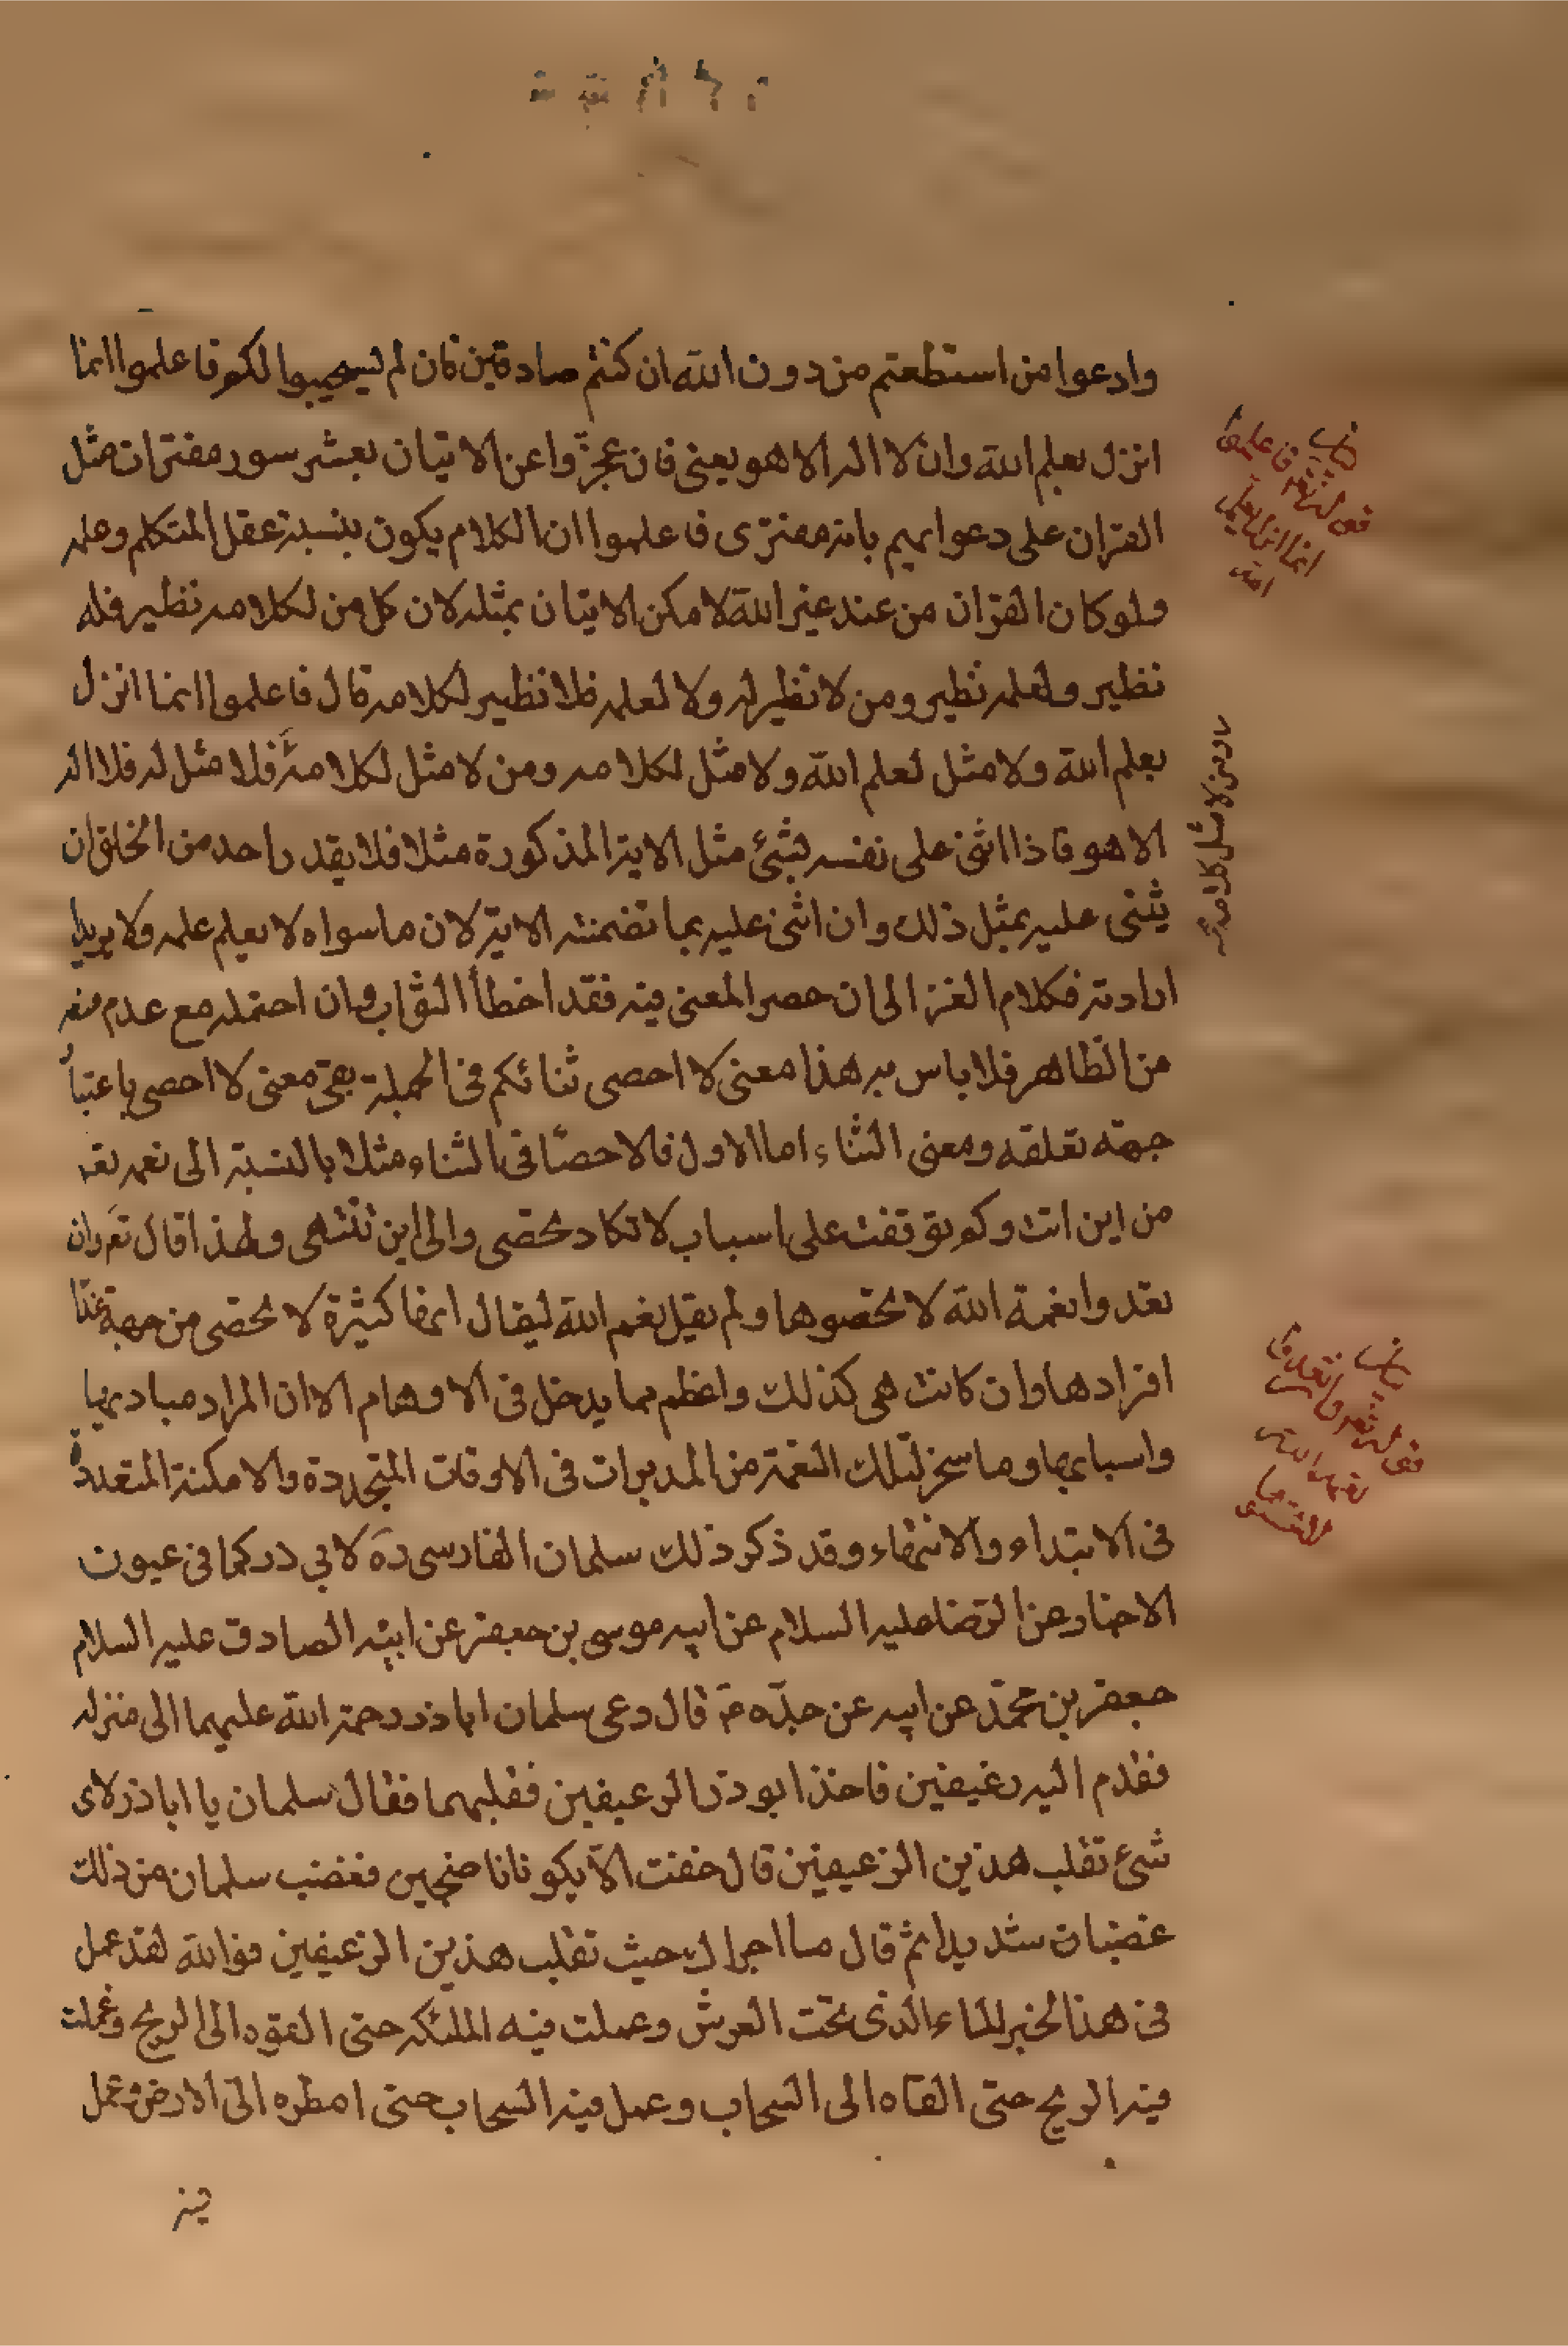 وادعوا من استطعتم من دون الله ان كنتم صادقين فان لم يستجيبوا لكم فاعلموا انما
انزل بعلم الله وان لا اله الا هو يعنى فان عجزوا عن الاتيان بعشر سور مفتريات مثل
القران على دعوايهم بانه مفترى فاعلموا ان الكلام يكون بنسبة عقل المتكلم وعلمه
ولو كان القران من عند غير الله لامكن الاتيان بمثله لان كل من لكلامه نظير فله
نظير ولعلمه نظير ومن لا نظير له ولا لعلمه فلا نظير لكلامه قال فاعلموا انما انزل
بعلم الله ولا مثل لعلم الله ولا مثل لكلامه ومن لا مثل لكلامه فلا مثل له فلا اله
الا هو فاذا اثنى على نفسه بشئ مثل الاية المذكورة مثلا فلا يقدر احد من الخلق ان
يثنى عليه بمثل ذلك وان اثنى عليه بما تضمنته الاية لان ما سواه لا يعلم علمه ولا يريد
ارادته فكلام الغزالى ان حصر المعنى فيه فقد اخطأ الثواب وان احتمله مع عدم
من الظاهر فلا باس به هذا معنى لا احصى ثنائكم فى الجملة بقى معنى لا احصى باعتبار
جهته تعلقه ومعنى الثناء اما الاول فالاحصاء فى الثناء مثلا بالنسبة الى نعمه نعمه
من اين اتت وكم توقفت على اسباب لا تكاد تحصى والى اين تنتهى ولهذا قال تع وان
تعدوا نعمة الله لا تحصوها ولم يقل نعم الله ليقال انها كثيرة لا تحصى من جهة
افرادها وان كانت هى كذلك واعظم مما يدخل فى الاوهام الا ان المراد مباديها
واسبابها وما سخر لتلك النعمة من المدبرات فى الاوقات المتجددة والامكنة المتعددة
فى الابتداء والانتهاء وقد ذكر ذلك سلمان الفارسى رة لابي ذر كما فى عيون
الاخبار عن الرضا عليه السلام عن ابيه موسى بن جعفر عن ابيه الصادق عليه السلام
جعفر بن محمد عن ابيه عن جده ع قال دعى سلمان اباذر رحمة الله عليهما الى منزله
فقدم اليه رغيفين فاخذ ابو ذر الرغيفين فقلبهما فقال سلمان يا اباذر لاى
شئ تقلب هذين الرغيفين قال خفت الا يكونا ناضجين فغضب سلمان من ذلك
غضبان شديدا ثم قال ما اجراك حيث تقلب هذين الرغيفين فوالله لقد عمل
فى هذا الخبز الماء الذى تحت العرش وعملت فيه الملئكه حتى القوه الى الريح وعملت
فيه الريح حتى القاه الى السحاب وعمل فيه السحاب حتى امطره الى الارض وعمل
فيه
ومن لا مثل لكلامه
بيان
قوله تع فاعلموا
انما انزل بعلم
الله
بيان
قوله تع وان تعدوا
نعمة الله
لا تحصوها